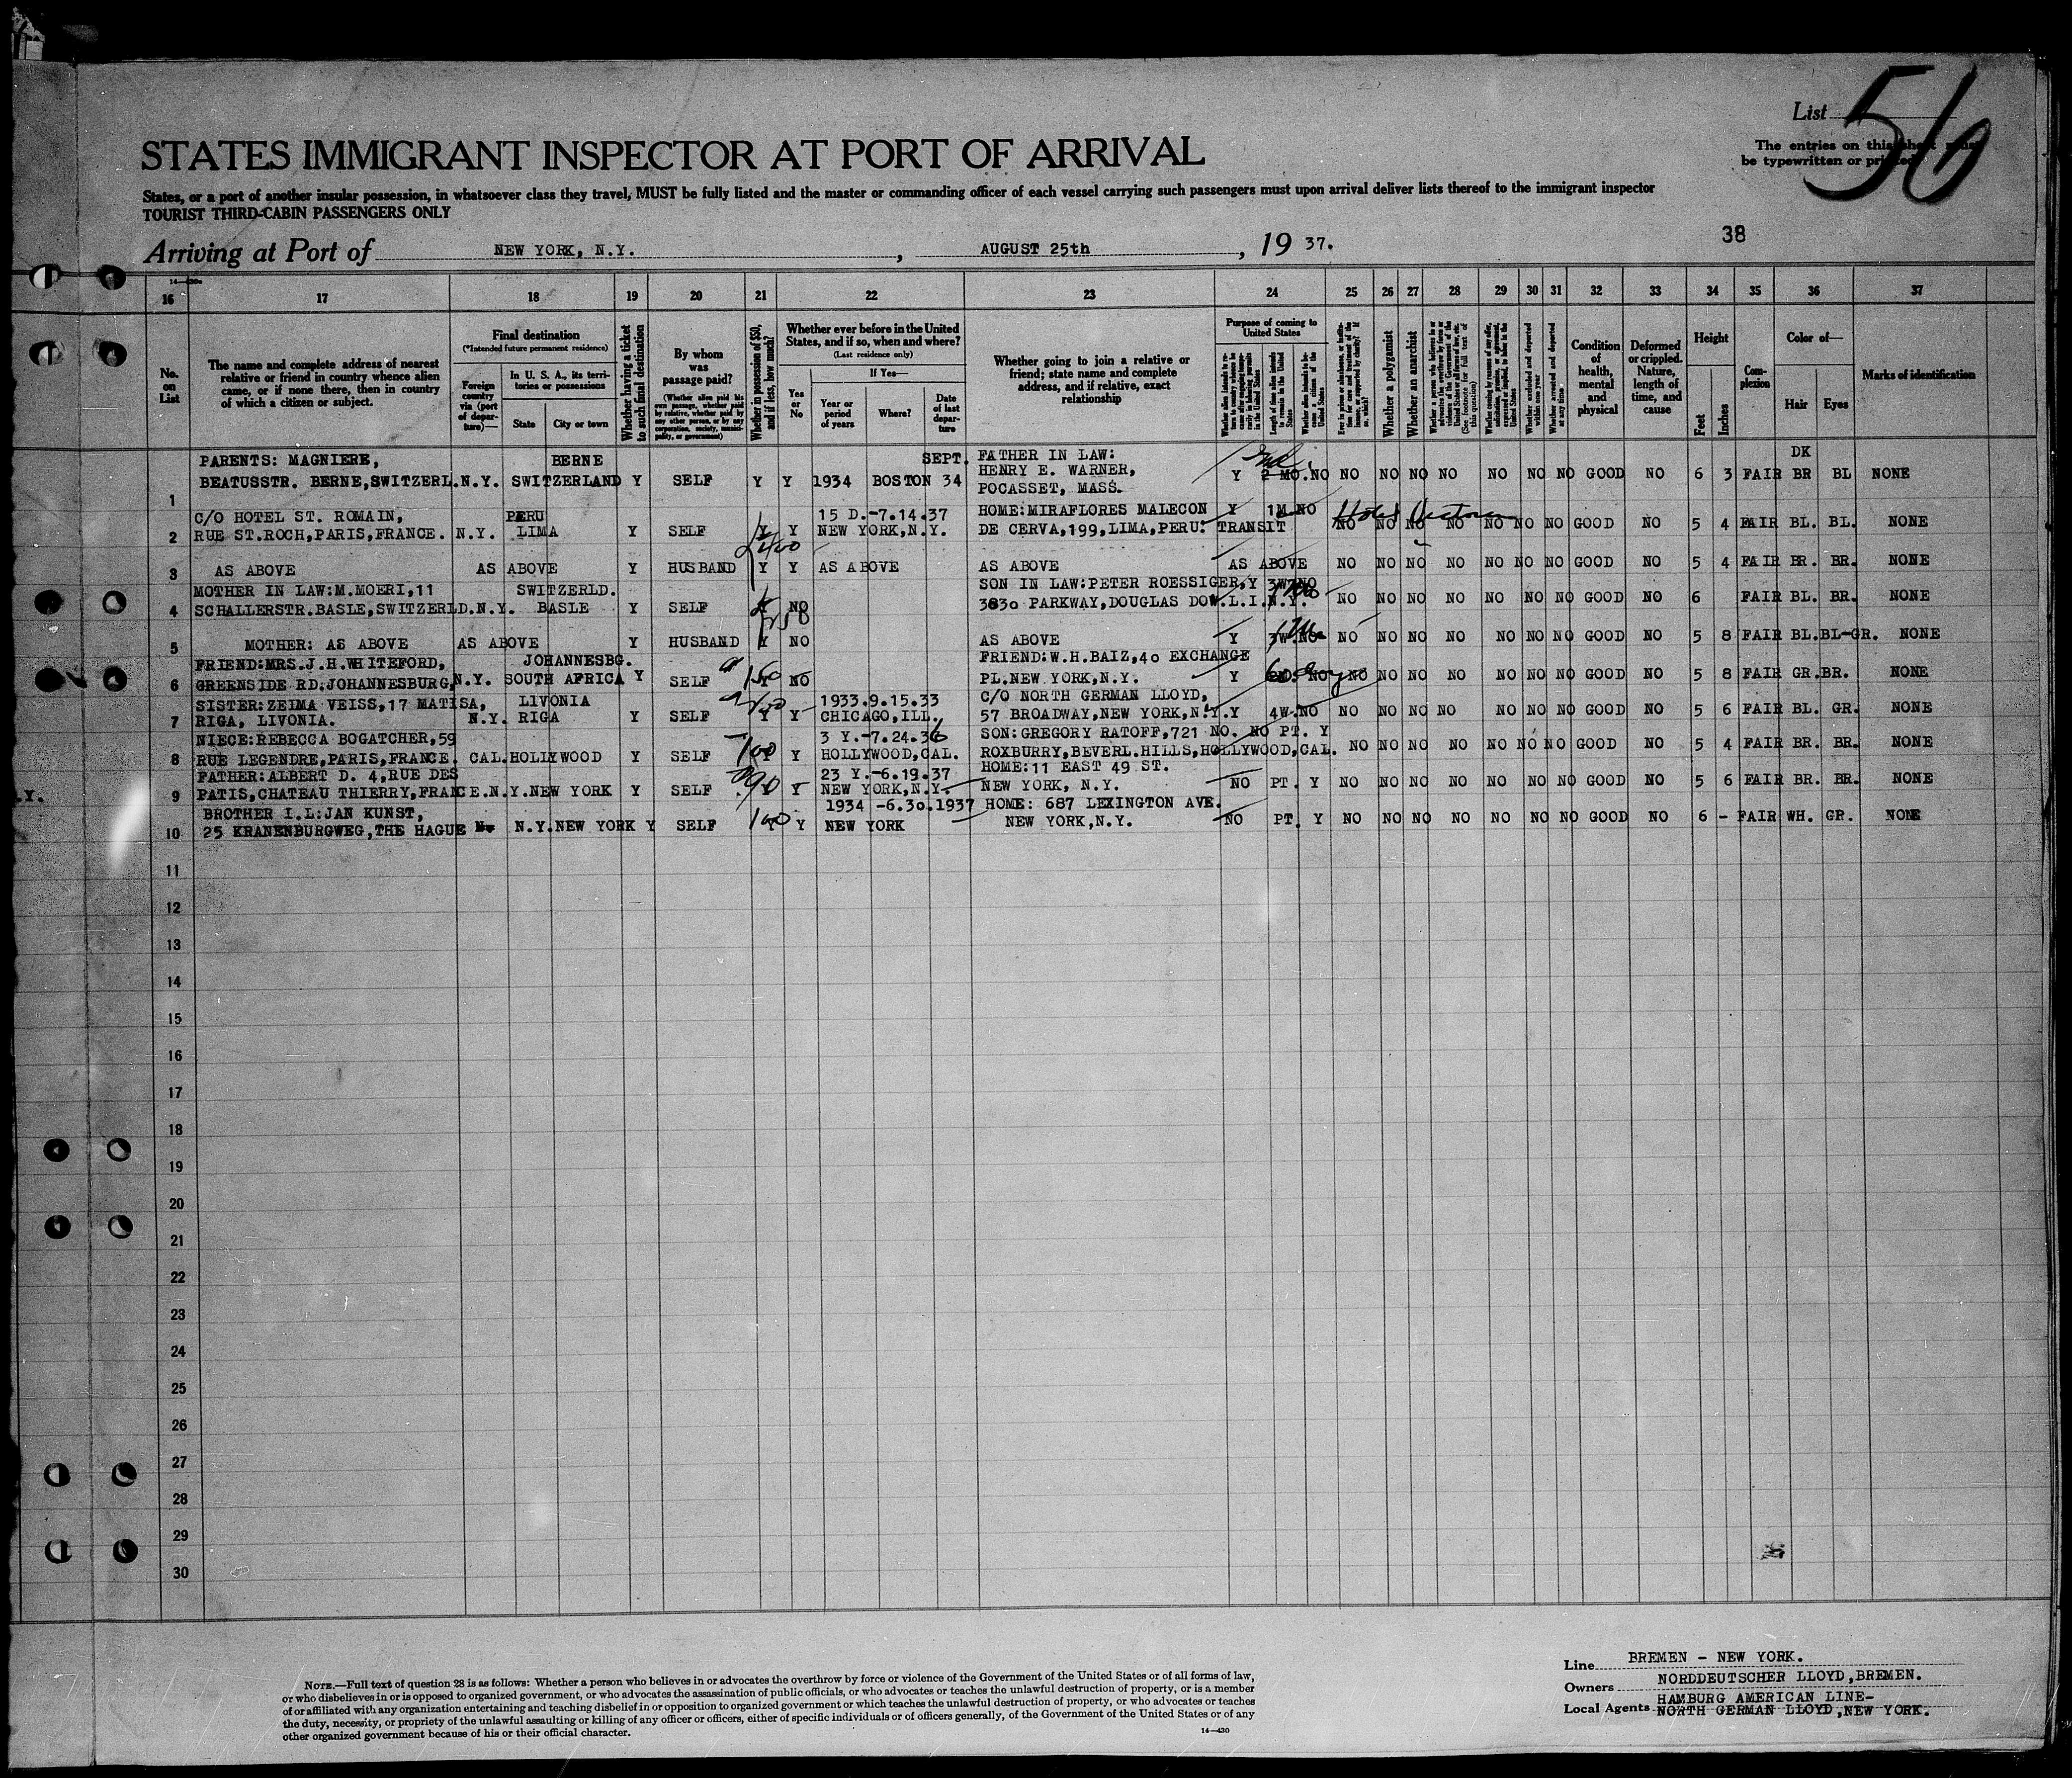 List 56
The entries on this sheet must
be typewritten or printed
STATES IMMIGRANT INSPECTOR AT PORT OF ARRIVAL
States, or a port of another insular possession, in whatsoever class they travel, MUST be fully listed and the master or commanding officer of each vessel carrying such passengers must upon arrival deliver lists thereof to the immigrant inspector
TOURIST THIRD-CABIN PASSENGERS ONLY
38
Arriving at Port of NEW YORK, N.Y., AUGUST 25th, 19 37.
16 17 18 19 20 21 22 23 24 25 26 27 28 29 30 31 32 33 34 35 36 37
No. on List
The name and complete address of nearest
relative or friend in country whence alien
came, or if none there, then in country
of which a citizen or subject.
Final destination
(*Intended future permanent residence)
Foreign country via (port of departure)—
In U. S. A., its territories or possessions
State
City or town
Whether having a ticket to such final destination
By whom was passage paid?
(Whether alien paid his own passage, whether paid by relative, whether paid by any other person, or by any corporation, society, municipality, or government)
Whether in possession of $50, and if less, how much?
Whether ever before in the United States, and if so, when and where?
(Last residence only)
Yes or No
If Yes—
Year or period of years
Where?
Date of last departure
Whether going to join a relative or
friend; state name and complete
address, and if relative, exact
relationship
Purpose of coming to United States
Length of time alien intends to remain in the United States
Whether a polygamist
Whether an anarchist
Whether excluded and deported within one year
Whether arrested and deported at any time
Condition of health, mental and physical
Deformed or crippled. Nature, length of time, and cause
Height
Feet
Inches
Complexion
Color of—
Hair
Eyes
Marks of identification
PARENTS: MAGNIERE, BERNE SEPT. FATHER IN LAW: DK
BEATUSSTR. BERNE,SWITZERL. N.Y. SWITZERLAND Y SELF Y Y 1934 BOSTON 34 HENRY E. WARNER, Y 2 MO. NO NO NO NO NO NO NO NO GOOD NO 6 3 FAIR BR BL NONE
1 POCASSET, MASS.
C/O HOTEL ST. ROMAIN, PERU 15 D.-7.14.37 HOME:MIRAFLORES MALECON Y 1M NO
2 RUE ST.ROCH,PARIS,FRANCE. N.Y. LIMA Y SELF Y Y NEW YORK,N.Y. DE CERVA,199,LIMA,PERU. TRANSIT NO NO NO NO NO NO NO GOOD NO 5 4 FAIR BL. BL. NONE
3 AS ABOVE AS ABOVE Y HUSBAND Y Y AS ABOVE AS ABOVE AS ABOVE NO NO NO NO NO NO NO GOOD NO 5 4 FAIR BR. BR. NONE
MOTHER IN LAW:M.MOERI,11 SWITZERLD. SON IN LAW:PETER ROESSIGER, Y 3W NO
4 SCHALLERSTR.BASLE,SWITZERLD. N.Y. BASLE Y SELF NO 3830 PARKWAY,DOUGLAS DOW.L.I.N.Y. NO NO NO NO NO NO NO GOOD NO 6 FAIR BL. BR. NONE
5 MOTHER: AS ABOVE AS ABOVE Y HUSBAND Y NO AS ABOVE Y 3W. NO NO NO NO NO NO NO NO GOOD NO 5 8 FAIR BL. BL-GR. NONE
FRIEND:MRS.J.H.WHITEFORD, JOHANNESBG. FRIEND:W.H.BAIZ,40 EXCHANGE
6 GREENSIDE RD.JOHANNESBURG, N.Y. SOUTH AFRICA Y SELF 150 NO PL.NEW YORK,N.Y. Y NO NO NO NO NO NO NO NO GOOD NO 5 8 FAIR GR. BR. NONE
SISTER:ZEIMA VEISS,17 MATISA, LIVONIA 1933.9.15.33 C/O NORTH GERMAN LLOYD,
7 RIGA, LIVONIA. N.Y. RIGA Y SELF Y Y CHICAGO,ILL. 57 BROADWAY,NEW YORK,N.Y. Y 4W. NO NO NO NO NO NO NO NO GOOD NO 5 6 FAIR BL. GR. NONE
NIECE:REBECCA BOGATCHER,59 3 Y.-7.24.36 SON:GREGORY RATOFF,721 NO. NO PT. Y
8 RUE LEGENDRE,PARIS,FRANCE. CAL. HOLLYWOOD Y SELF 100 Y HOLLYWOOD,CAL. ROXBURRY,BEVERL.HILLS,HOLLYWOOD,CAL. NO NO NO NO NO NO NO GOOD NO 5 4 FAIR BR. BR. NONE
FATHER:ALBERT D. 4,RUE DES 23 Y.-6.19.37 HOME:11 EAST 49 ST.
.Y. 9 PATIS,CHATEAU THIERRY,FRANCE. N.Y. NEW YORK Y SELF Y NEW YORK,N.Y. NEW YORK, N.Y. NO PT. Y NO NO NO NO NO NO NO GOOD NO 5 6 FAIR BR. BR. NONE
BROTHER I.L:JAN KUNST, 1934 -6.30.1937 HOME: 687 LEXINGTON AVE.
10 25 KRANENBURGWEG,THE HAGUE N.Y. NEW YORK Y SELF 100 Y Y NEW YORK NEW YORK,N.Y. NO PT. Y NO NO NO NO NO NO NO GOOD NO 6 - FAIR WH. GR. NONE
11
12
13
14
15
16
17
18
19
20
21
22
23
24
25
26
27
28
29
30
NOTE.—Full text of question 28 is as follows: Whether a person who believes in or advocates the overthrow by force or violence of the Government of the United States or of all forms of law,
or who disbelieves in or is opposed to organized government, or who advocates the assassination of public officials, or who advocates or teaches the unlawful destruction of property, or is a member
of or affiliated with any organization entertaining and teaching disbelief in or opposition to organized government or which teaches the unlawful destruction of property, or who advocates or teaches
the duty, necessity, or propriety of the unlawful assaulting or killing of any officer or officers, either of specific individuals or of officers generally, of the Government of the United States or of any
other organized government because of his or their official character.
14—430
Line BREMEN - NEW YORK.
Owners NORDDEUTSCHER LLOYD,BREMEN.
Local Agents HAMBURG AMERICAN LINE-
NORTH GERMAN LLOYD,NEW YORK.